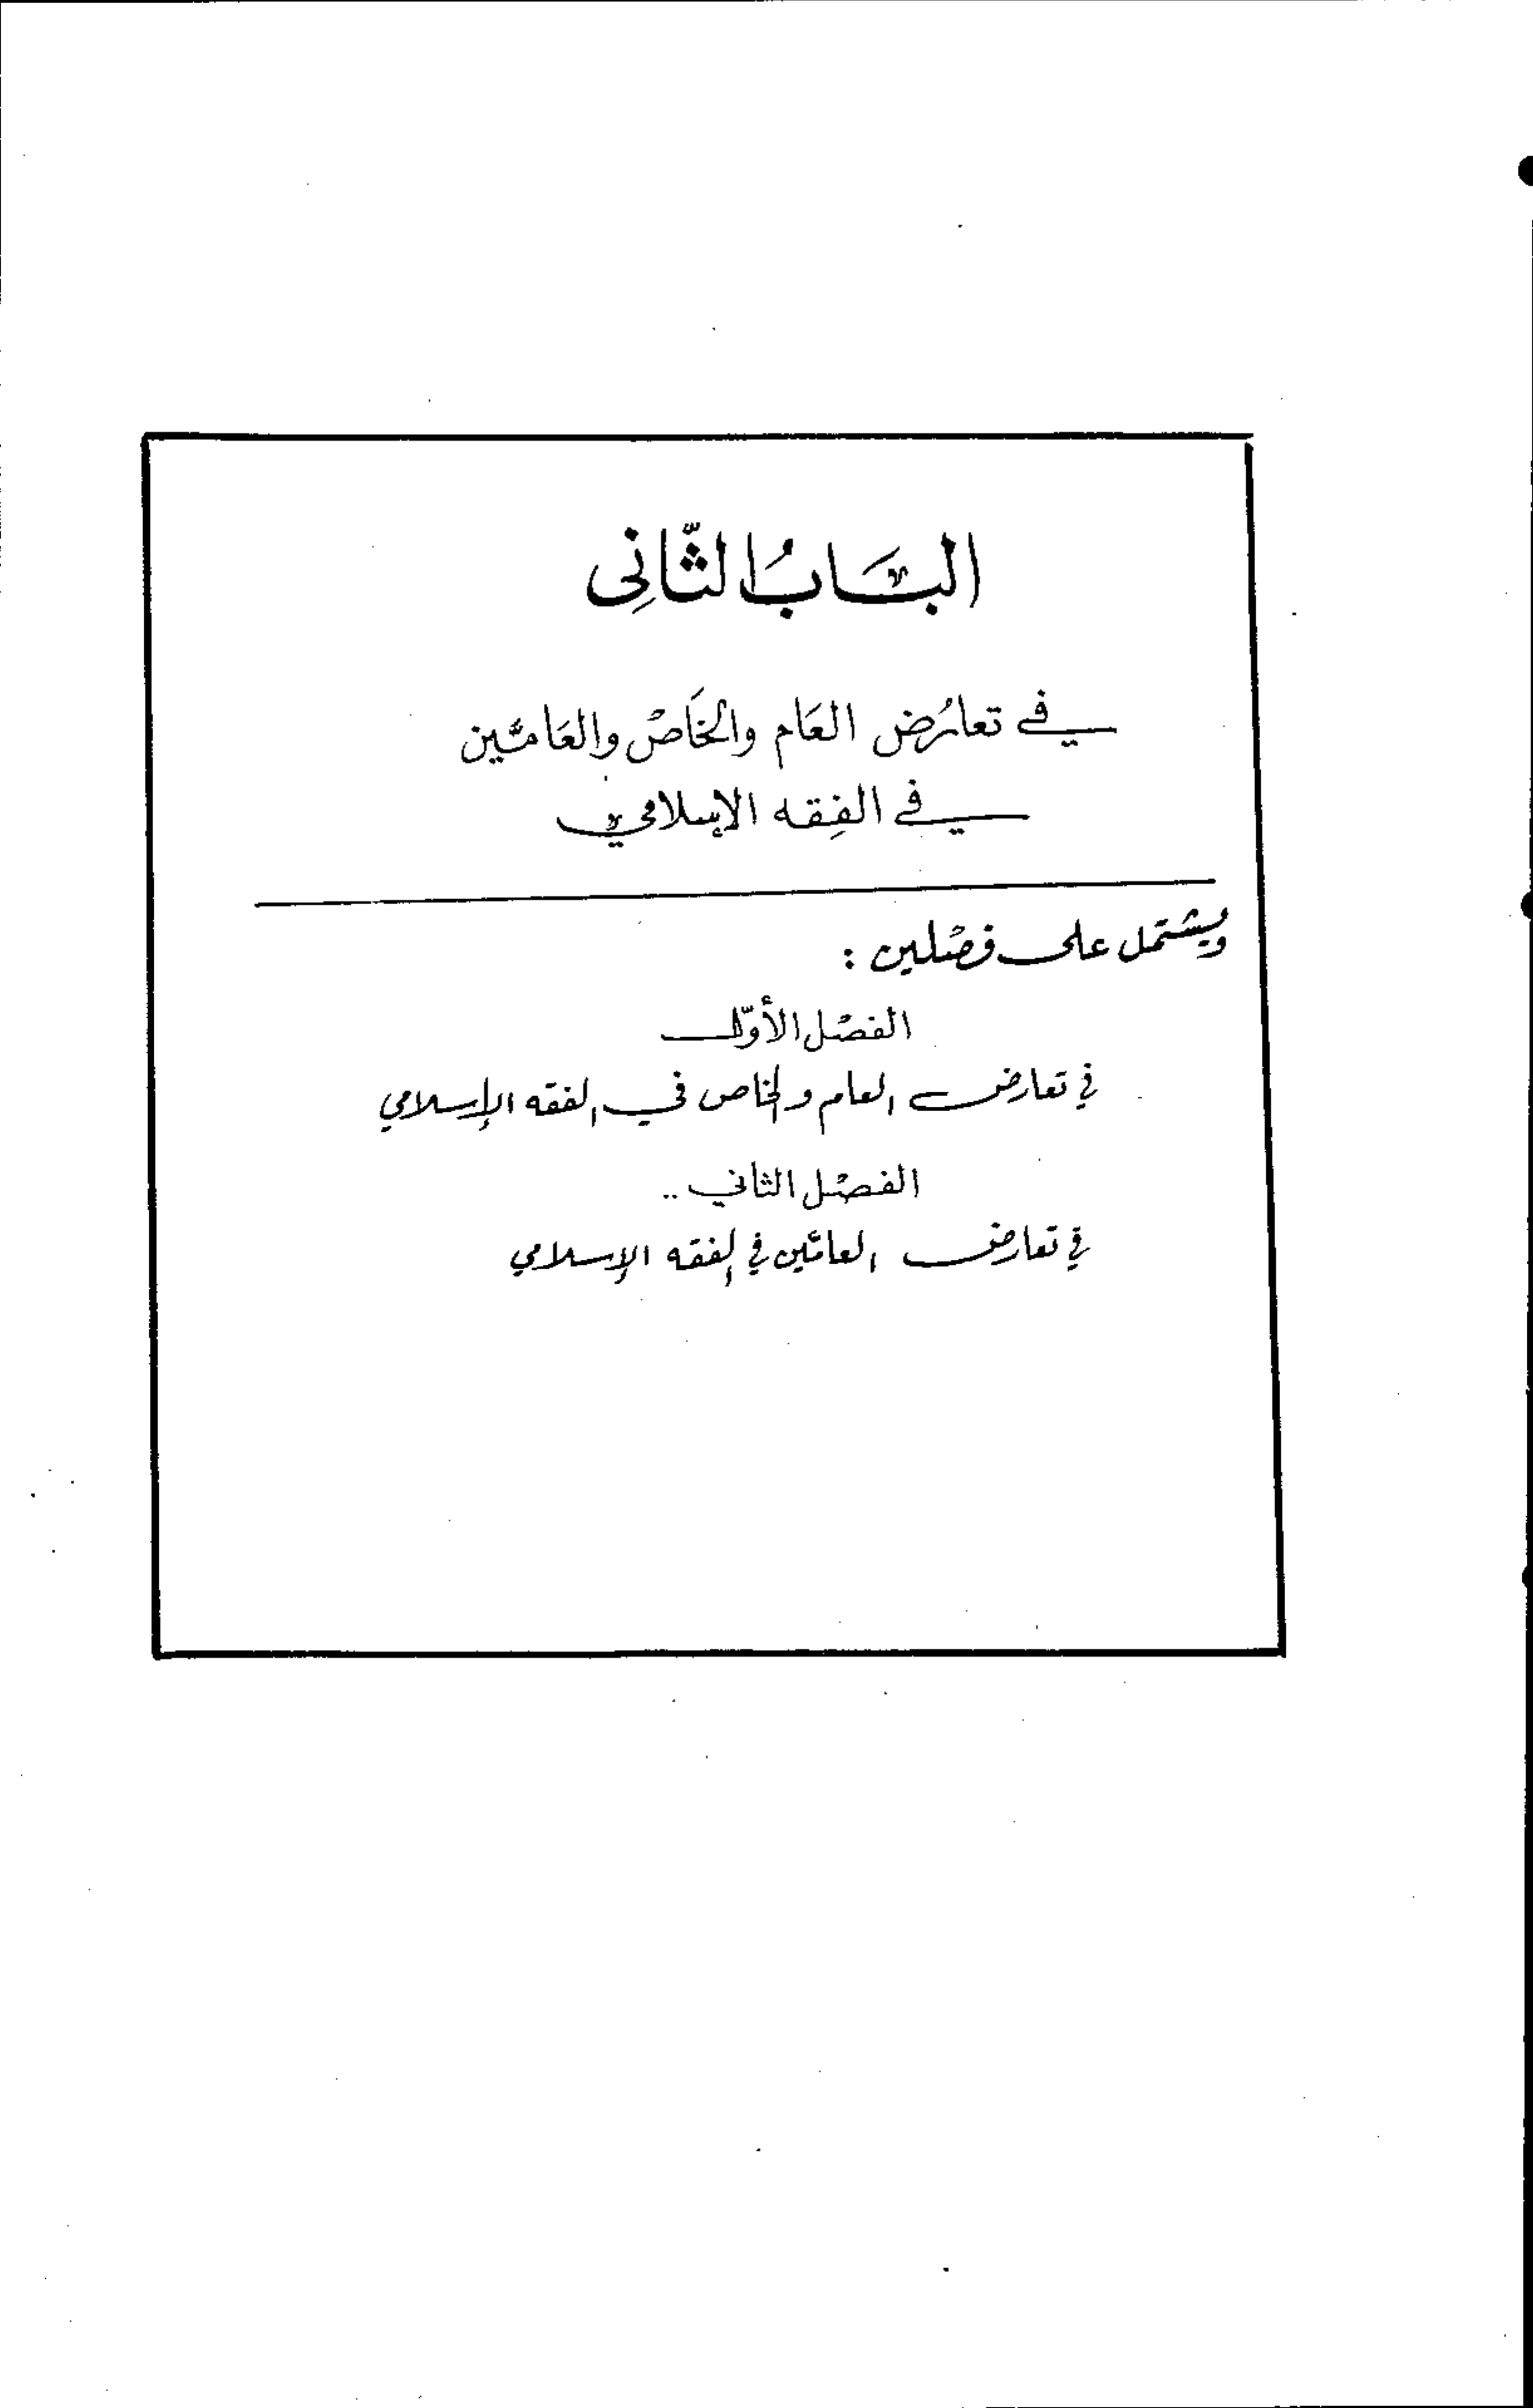 البَابُ الثَّانِى
في تعارُض العَام والخَاص والعَامَّين
في الفِقه الإسلامي
ويشتمل على فصلين :
الفصل الأوّل
في تعارض العام والخاص في الفقه الإسلامي
الفصل الثاني ..
في تعارض العامّين في الفقه الإسلامي